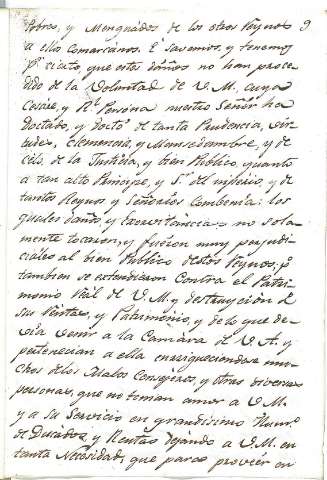 Pobres, y Menguados de los otros Reynos 9
a ellos comarcanos. E savemos, y tenemos
pr. cierto, que estos daños no han proce-
dido de la Voluntad de V. M. cuya
Cesárea, y Rl. Persona nuestro Señor ha
Doctado, y doctó de tanta Prudencia, vir-
tudes, Clemencia, y Mansedumbre, y de
Celo de la Justicia, y bien Publico, quanto
a tan alto Principe, y Sr. del ynperio, y de
tantos Reynos y Señorios Combenia: los
quales daños, y Exorvitancias no sola-
mente tocaron, y fueron muy perjudi-
ciales al bien Publico destos Reynos, pº
tambien se extendieron Contra el Patri-
monio Real de V. M. y destruycion de
sus Rentas, y Patrimonio, y de lo que de-
via venir a la Camara de V. A. y
pertenecian a ella enrriqueciendose mu-
chos de los Malos Consejeros, y otras diversas
personas, que no tenian amor a V. M.
y a su Servicio en grandisimo Numº
de Ducados, y Rentas dejando a V. M. en
tanta Necesidad, que para proveer en